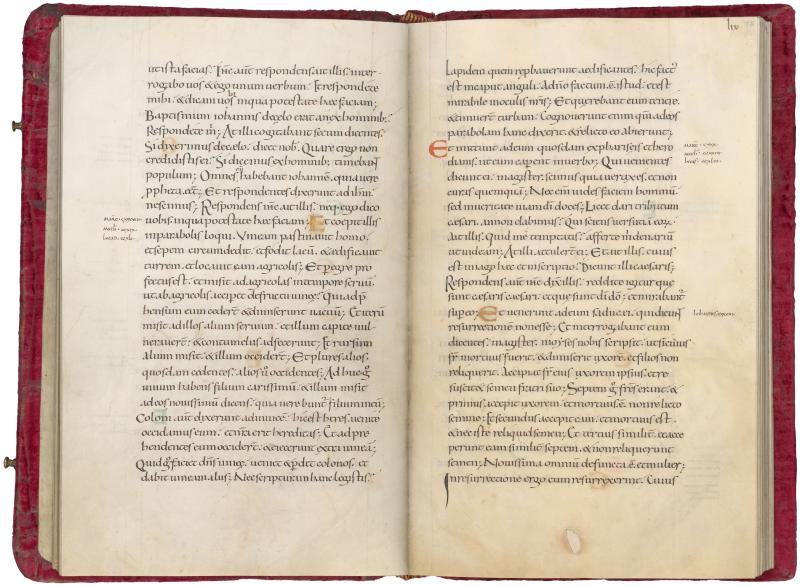 ut ista facias; Ihc aut respondens ait illis; inter-
rogabo vos & ego unum verbum; Et respondete
mihi & dicam vobis in qua potestate haec faciam;
Baptismum iohannis de celo erat an ex hominib;
Respondete m; At illi cogitabant secum dicentes.
Si dixerimus de celo; dicet nob. Quare ergo non
credidistis ei; Si dicemus ex hominib; timebant
populum; Omnes habebant iohannem quia vere
propheta erat; Et respondentes dixerunt ad ihm.
nescimus; Respondens ihc ait illis; neq; ego dico
vobis in qua potestate haec faciam; Et coepit illis
in parabolis loqui. Vineam pastinavit homo.
et sepem circumdedit. et fodit lacu. & aedificavit
turrem. et locavit eam agricolis; Et pegre pro
fectus est. et misit ad agricolas in tempore servu.
ut ab agricolis acciperet de fructu vineae; Qui adp
hensum eum ceder & dimiserunt vacuu; Et iteru
misit ad illos alium servum. et illum capite vul-
neraver & contumeliis adfecerunt; Et rursum
alium misit. & illum occider; Et plures alios.
quosdam cedentes. alios u occidentes; Adhuc g
unum habens filium carissimu. & illum misit
ad eos novissimu dicens. quia verebunt filium meu;
Coloni aut dixerunt ad invice. hic est heres. venite
occidamus eum. et nra erit hereditas; Et adpre
hendentes eum occider. & eiecerunt extra vinea;
Quid g faciet dns vineae. veniet & pdet colonos. et
dabit vineam aliis; Nec scripturam hanc legistis.
mare
math
lucas
liu
lapidem quem reprobaverunt aedificantes. hic fact
est in caput anguli. A dno factum e istud. et est
mirabile in oculis nris; Et querebant eum tenere.
& timuer turbam. Cognoverunt enim qm ad eos
parabolam hanc dixerit. & relicto eo abierunt;
Et mittunt ad eum quosdam ex phariseis et hero
dianis. ut eum caperent in verbo; Qui venientes
dicunt ei. magister. scimus quia verax es. et non
curas quemqua; Nec eni vides faciem hominu
sed in veritate viam di doces; Licet dari tributum
caesari. an non dabimus. Qui sciens versutia eor.
ait illis. Quid me temptatis. afferte m denariu
ut videam; At illi attuler ei; Et ait illis. cuius
est imago haec et inscriptio. Dicunt illi caesaris;
Respondens aut ihc dix illis. reddite igitur quae
sunt caesaris caesari. et que sunt di do; et mirabant
super eo; Et venerunt ad eum saducei. qui dicunt
resurrectionem non esse; Et interrogabant eum
dicentes. magister. moyses nobis scripsit. ut si cuius
fr mortuus fuerit. & dimiserit uxore. et filios non
reliquerit. Accipiat fr eius uxorem ipsius. et re
suscitet semen fratri suo; Septem g fres erant. &
primus accepit uxorem. et mortuus e. non relicto
semine; Et secundus accepit eam. et mortuus est.
& nec iste reliquid semen; Et tertius similit. et acce
perunt eam similit septem. & non reliquerunt
semen; Novissima omniu defuncta e. et mulier;
In resurrectione ergo cum resurrexerint. Cuius